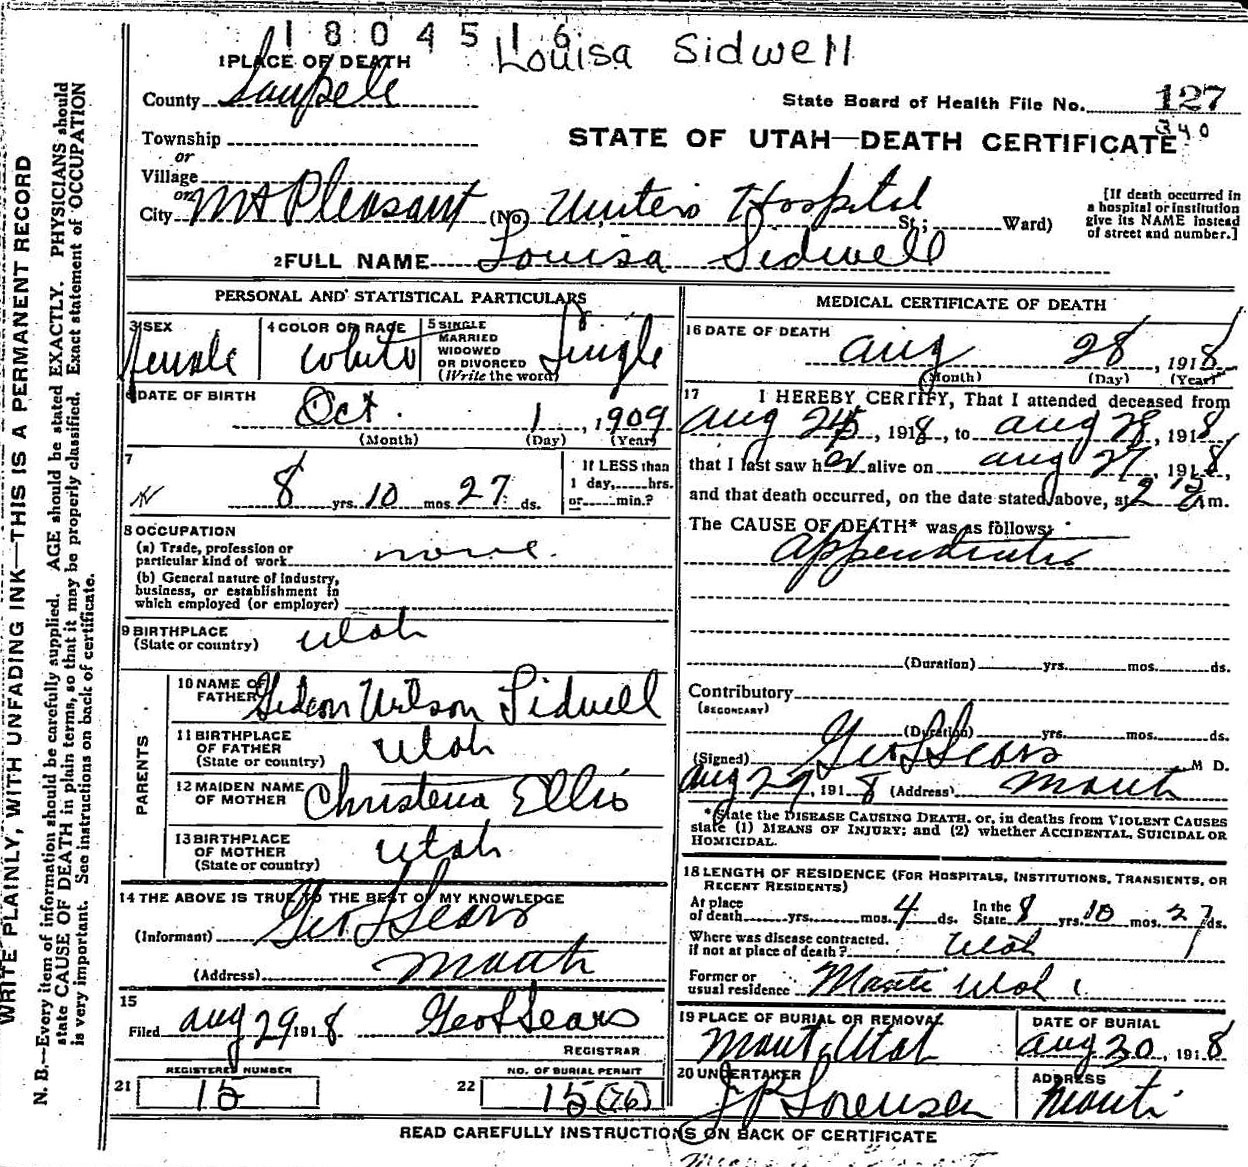 1804516
Louisa Sidwell
1 PLACE OF DEATH
County Sanpete
State Board of Health File No. 127
340
STATE OF UTAH—DEATH CERTIFICATE
Township
or
Village
or
City Mt Pleasant (No. Hunters Hospital St.; Ward)
[If death occurred in a hospital or institution give its NAME instead of street and number.]
2 FULL NAME Louisa Sidwell
PERSONAL AND STATISTICAL PARTICULARS
3 SEX
Female
4 COLOR OR RACE
White
5 SINGLE
MARRIED
WIDOWED
OR DIVORCED
(Write the word)
Single
6 DATE OF BIRTH
Oct. 1, 1909
(Month) (Day) (Year)
7
8 yrs. 10 mos. 27 ds.
If LESS than
1 day, hrs.
or min.?
8 OCCUPATION
(a) Trade, profession or
particular kind of work none.
(b) General nature of industry,
business, or establishment in
which employed (or employer)
9 BIRTHPLACE
(State or country) Utah
PARENTS
10 NAME OF
FATHER Gideon Wilson Sidwell
11 BIRTHPLACE
OF FATHER
(State or country) Utah
12 MAIDEN NAME
OF MOTHER Christena Ellis
13 BIRTHPLACE
OF MOTHER
(State or country) Utah
14 THE ABOVE IS TRUE TO THE BEST OF MY KNOWLEDGE
(Informant) Geo L Sears
(Address) Manti
15
Filed Aug 29 1918 Geo L Sears
REGISTRAR
21 REGISTERED NUMBER
15
22 NO. OF BURIAL PERMIT
15 (76)
MEDICAL CERTIFICATE OF DEATH
16 DATE OF DEATH
Aug 28, 1918
(Month) (Day) (Year)
17 I HEREBY CERTIFY, That I attended deceased from
Aug 24, 1918, to Aug 28, 1918,
that I last saw her alive on Aug 27, 1918,
and that death occurred, on the date stated above, at 2 15 a m.
The CAUSE OF DEATH* was as follows:
Appendicitis
(Duration) yrs. mos. ds.
Contributory
(SECONDARY)
(Duration) yrs. mos. ds.
(Signed) Geo L Sears M D.
Aug 29, 1918 (Address) Manti
*State the DISEASE CAUSING DEATH, or, in deaths from VIOLENT CAUSES
state (1) MEANS OF INJURY; and (2) whether ACCIDENTAL, SUICIDAL OR
HOMICIDAL.
18 LENGTH OF RESIDENCE (FOR HOSPITALS, INSTITUTIONS, TRANSIENTS, OR
RECENT RESIDENTS)
At place
of death yrs. mos. 4 ds. In the State 8 yrs. 10 mos. 27 ds.
Where was disease contracted,
if not at place of death? Utah
Former or
usual residence Manti Utah
19 PLACE OF BURIAL OR REMOVAL
Manti, Utah
DATE OF BURIAL
Aug 30, 1918
20 UNDERTAKER
J P Sorensen
ADDRESS
Manti
READ CAREFULLY INSTRUCTIONS ON BACK OF CERTIFICATE
WRITE PLAINLY, WITH UNFADING INK—THIS IS A PERMANENT RECORD
N. B.—Every item of information should be carefully supplied. AGE should be stated EXACTLY. PHYSICIANS should
state CAUSE OF DEATH in plain terms, so that it may be properly classified. Exact statement of OCCUPATION
is very important. See instructions on back of certificate.